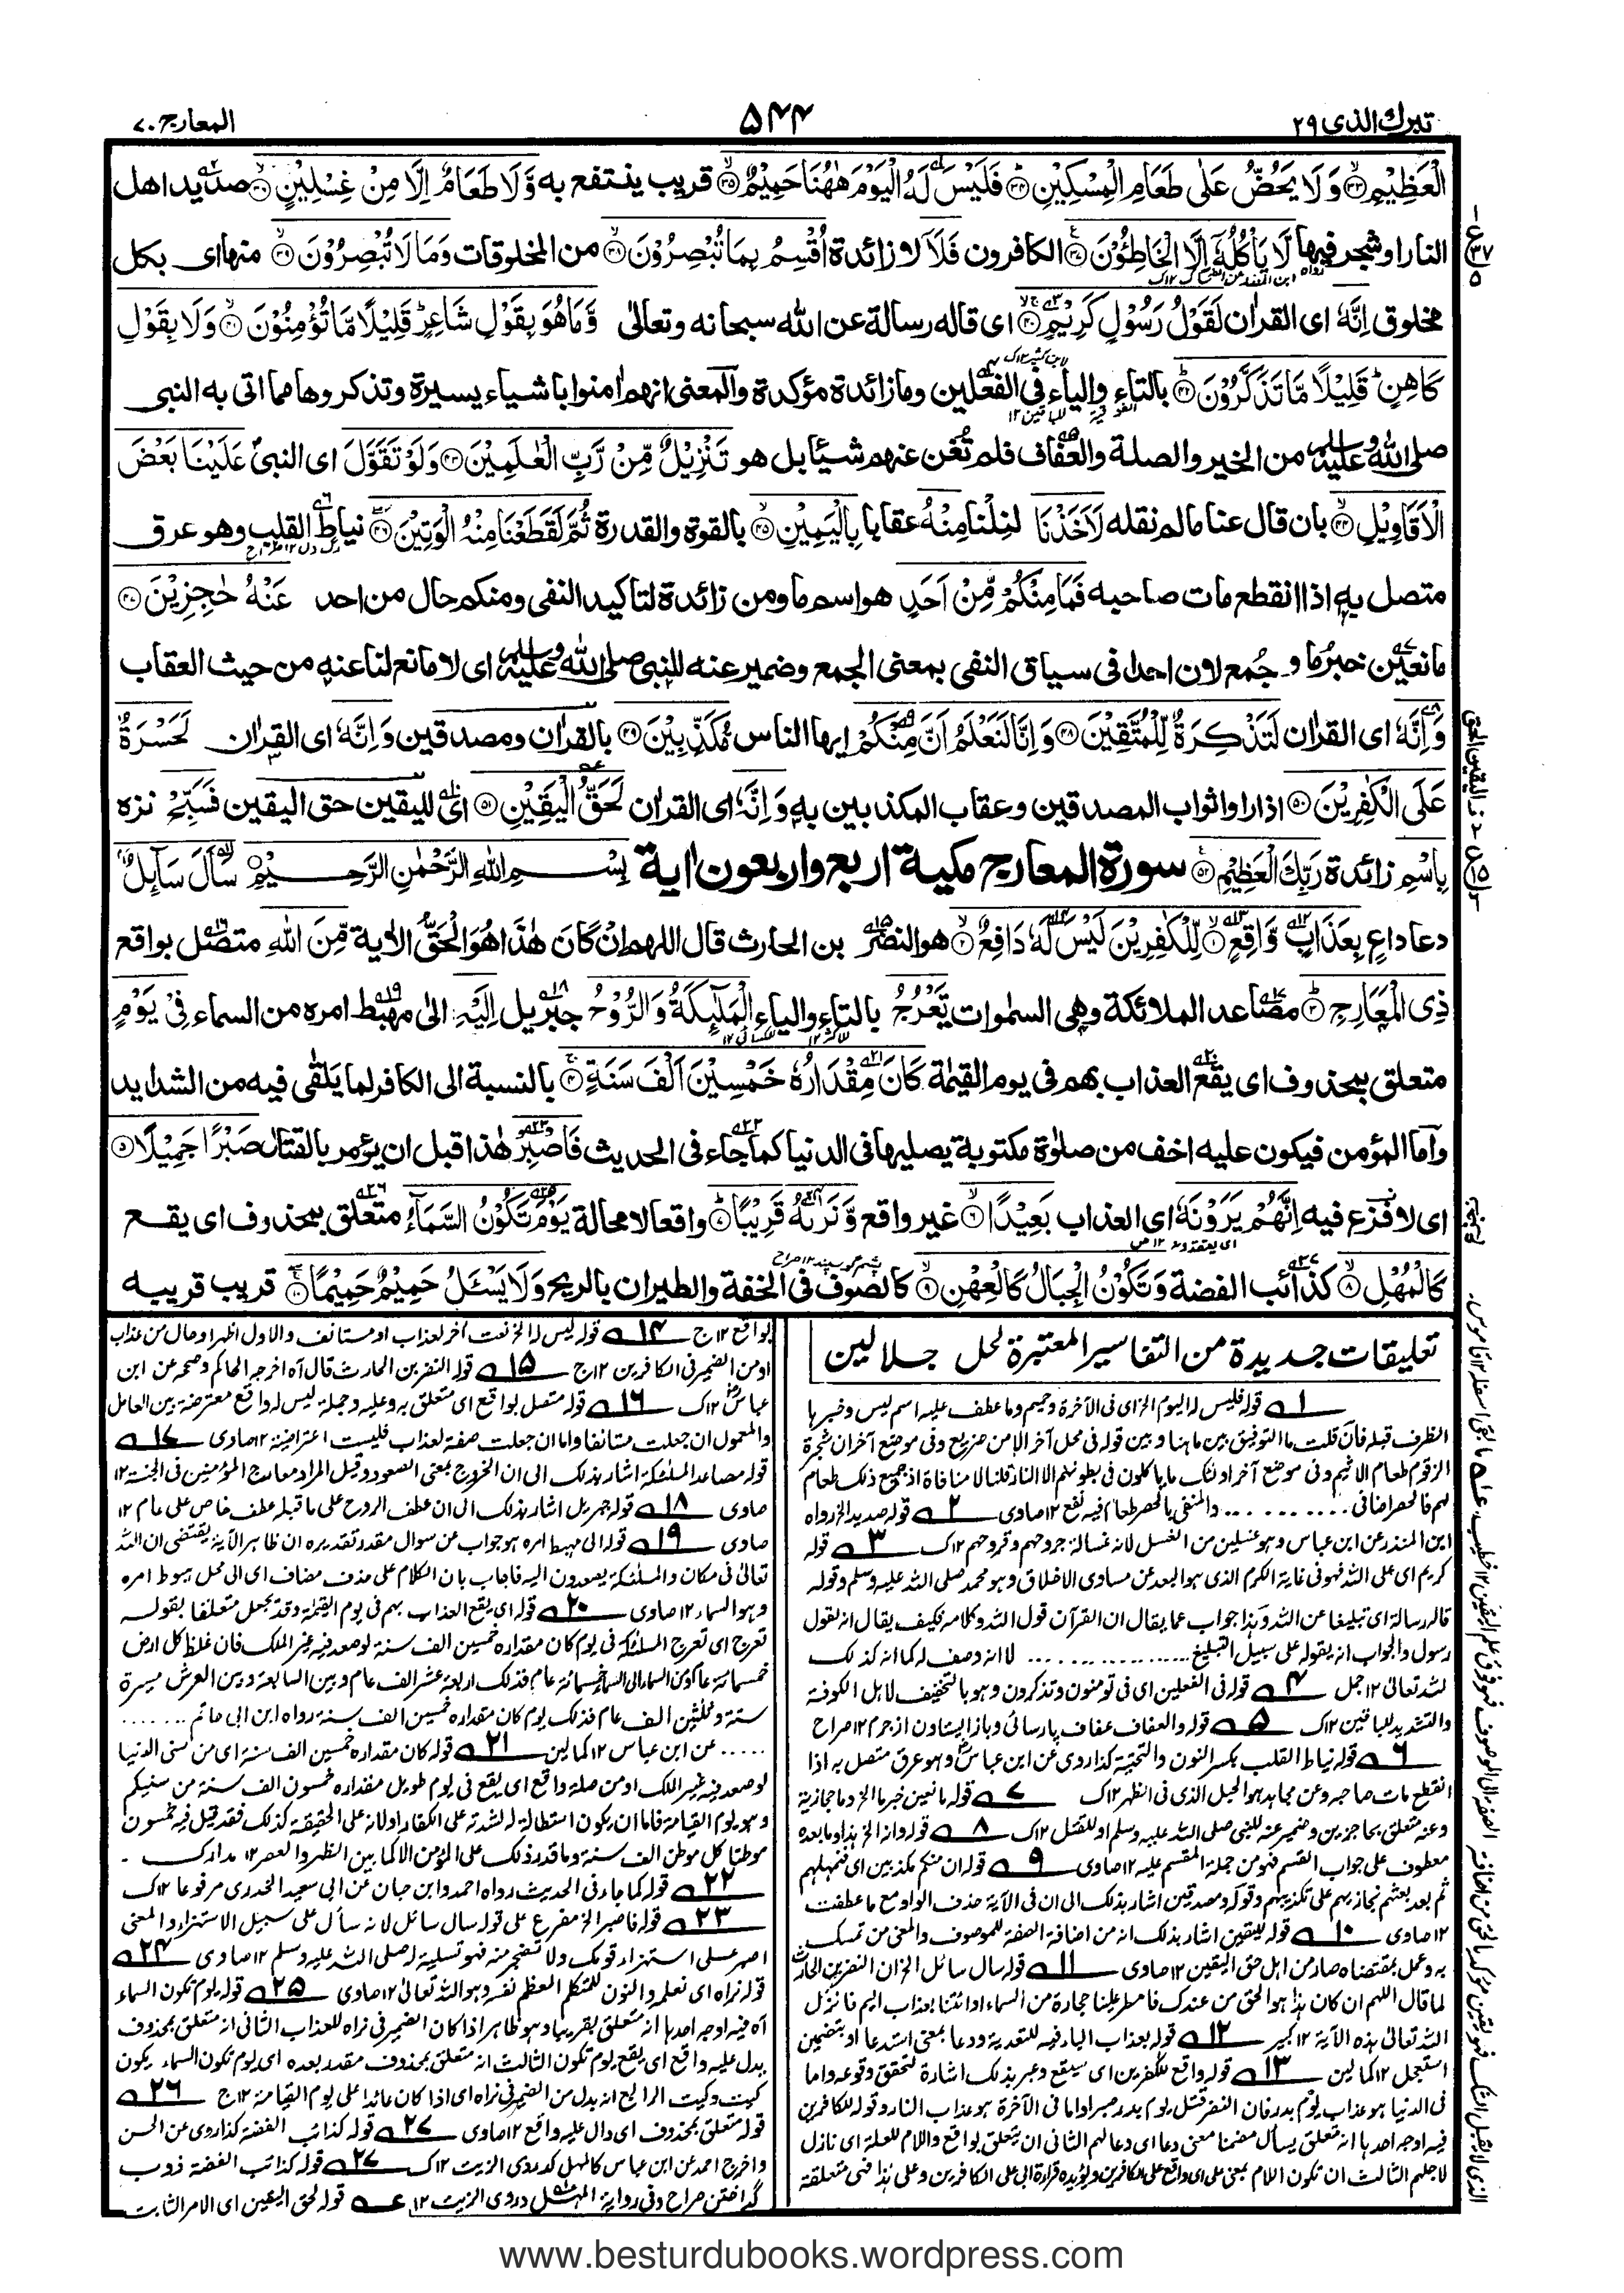 تبرك الذى ٢٩
۵۴۴
المعارج ٧٠
الْعَظِيْمِ ۙ۳۳ وَلَا يَحُضُّ عَلٰى طَعَامِ الْمِسْكِيْنِ ؕ۳۴ فَلَيْسَ لَهُ الْيَوْمَ هٰهُنَا حَمِيْمٌ ۙ۳۵ قريب ينتفع به وَّلَا طَعَامٌ اِلَّا مِنْ غِسْلِيْنٍ ۙ۳۶ صديد اهل
النار او شجر فيها لَا يَاْكُلُهٗۤ اِلَّا الْخَاطِـُٔوْنَ ۳۷ الكافرون فَلَاۤ لا زائدة اُقْسِمُ بِمَا تُبْصِرُوْنَ ۙ۳۸ من المخلوقات وَمَا لَا تُبْصِرُوْنَ ۙ۳۹ منها اى بكل
مخلوق اِنَّهٗ اى القران لَقَوْلُ رَسُوْلٍ كَرِيْمٍ ۴۰ اى قاله رسالة عن الله سبحانه وتعالىٰ وَّمَا هُوَ بِقَوْلِ شَاعِرٍ ؕ قَلِيْلًا مَّا تُؤْمِنُوْنَ ۙ۴۱ وَلَا بِقَوْلِ
كَاهِنٍ ؕ قَلِيْلًا مَّا تَذَكَّرُوْنَ ؕ۴۲ بالتاء والياء فى الفعلين وما زائدة مؤكدة والمعنى انهم امنوا باشياء يسيرة وتذكروها مما اتى به النبى
صلى الله عليه وسلم من الخير والصلة والعفاف فلم تغن عنهم شيئا بل هو تَنْزِيْلٌ مِّنْ رَّبِّ الْعٰلَمِيْنَ ۴۳ وَلَوْ تَقَوَّلَ اى النبى عَلَيْنَا بَعْضَ
الْاَقَاوِيْلِ ۙ۴۴ بان قال عنا ما لم نقله لَاَخَذْنَا لنلنا مِنْهُ عقابا بِالْيَمِيْنِ ۙ۴۵ بالقوة والقدرة ثُمَّ لَقَطَعْنَا مِنْهُ الْوَتِيْنَ ۴۶ نياط القلب وهو عرق
متصل به اذا انقطع مات صاحبه فَمَا مِنْكُمْ مِّنْ اَحَدٍ هو اسم ما ومن زائدة لتاكيد النفى ومنكم حال من احد عَنْهُ حٰجِزِيْنَ ۴۷
مانعين خبر ما وجمع لان احدا فى سياق النفى بمعنى الجمع وضمير عنه للنبى صلى الله عليه وسلم اى لا مانع لنا عنه من حيث العقاب
وَاِنَّهٗ اى القران لَتَذْكِرَةٌ لِّلْمُتَّقِيْنَ ۴۸ وَاِنَّا لَنَعْلَمُ اَنَّ مِنْكُمْ ايها الناس مُّكَذِّبِيْنَ ۴۹ بالقران ومصدقين وَاِنَّهٗ اى القران لَحَسْرَةٌ
عَلَى الْكٰفِرِيْنَ ۵۰ اذا راوا ثواب المصدقين وعقاب المكذبين به وَاِنَّهٗ اى القران لَحَقُّ الْيَقِيْنِ ۵۱ اى لليقين حق اليقين فَسَبِّحْ نزه
بِاسْمِ زائدة رَبِّكَ الْعَظِيْمِ ۵۲ سورة المعارج مكية اربع واربعون اية بِسْمِ اللهِ الرَّحْمٰنِ الرَّحِيْمِ سَاَلَ سَآىِٕلٌۢ
دعا داع بِعَذَابٍ وَّاقِعٍ ۙ۱ لِّلْكٰفِرِيْنَ لَيْسَ لَهٗ دَافِعٌ ۙ۲ هو النضر بن الحارث قال اللهم ان كان هٰذا هو الحق الاية مِّنَ اللهِ متصل بواقع
ذِى الْمَعَارِجِ ؕ۳ مصاعد الملائكة وهى السمٰوات تَعْرُجُ بالتاء والياء الْمَلٰٓىِٕكَةُ وَالرُّوْحُ جبريل اِلَيْهِ الىٰ مهبط امره من السماء فِيْ يَوْمٍ
متعلق بمحذوف اى يقع العذاب بهم فى يوم القيٰمة كَانَ مِقْدَارُهٗ خَمْسِيْنَ اَلْفَ سَنَةٍ ۚ۴ بالنسبة الى الكافر لما يلقى فيه من الشدايد
واما المؤمن فيكون عليه اخف من صلوٰة مكتوبة يصليها فى الدنيا كما جاء فى الحديث فَاصْبِرْ هٰذا قبل ان يؤمر بالقتال صَبْرًا جَمِيْلًا ۵
اى لا فزع فيه اِنَّهُمْ يَرَوْنَهٗ اى العذاب بَعِيْدًا ۙ۶ غير واقع وَّنَرٰىهُ قَرِيْبًا ؕ۷ واقعا لا محالة يَوْمَ تَكُوْنُ السَّمَآءُ متعلق بمحذوف اى يقع
كَالْمُهْلِ ۙ۸ كذائب الفضة وَتَكُوْنُ الْجِبَالُ كَالْعِهْنِ ۙ۹ كالصوف فى الخفة والطيران بالريح وَلَا يَسْـَٔلُ حَمِيْمٌ حَمِيْمًا ۱۰ قريب قريبه
تعليقات جديدة من التفاسير المعتبرة لحل جلالين
۱ قوله فليس له اليوم الخ اى فى الآخرة وحميم وما عطف عليه اسم ليس وخبرها
الظرف قبله فان قلت ما التوفيق بين ما هنا وبين قوله فى محل آخر الا من ضريع وفى موضع آخر ان شجرة
الزقوم طعام الاثيم وفى موضع آخر اولئك ما ياكلون فى بطونهم الا النار قلنا لا منافاة اذ جميع ذلك طعام
لهم فالحصر اضافى ........ والمنفى بالحصر طعام فيه نفع ۱۲ صاوى ۲ قوله صديد الخ رواه
ابن المنذر عن ابن عباس وهو غسلين من الغسل لانه غسالة جروحهم وقروحهم ۱۲ك ۳ قوله
كريم اى على الله فهو فى غاية الكرم الذى هو البعد عن مساوى الاخلاق وهو محمد صلى الله عليه وسلم وقوله
قاله رسالة اى تبليغا عن الله وهذا جواب عما يقال ان القرآن قول الله وكلامه فكيف يقال انه لقول
رسول والجواب انه يقوله على سبيل التبليغ ........ لا انه وصف له كما انه كذلك
لله تعالى ۱۲ جمل ۴ قوله فى الفعلين اى فى تومنون وتذكرون وهو بالتخفيف لاهل الكوفة
والتشديد للباقين ۱۲ك ۵ قوله والعفاف عفاف پارسائى وباز ايستادن از حرم ۱۲ صراح
۶ قوله نياط القلب بكسر النون والتحتية كذا روى عن ابن عباس وهو عرق متصل به اذا
انقطع مات صاحبه وعن مجاهد هو الحبل الذى فى الظهر ۱۲ك ۷ قوله مانعين خبر ما الخ وما حجازية
وعنه متعلق بحاجزين وضمير عنه للنبى صلى الله عليه وسلم او للقتل ۱۲ك ۸ قوله وانه الخ هذا وما بعده
معطوف على جواب القسم فهو من جملة المقسم عليه ۱۲ صاوى ۹ قوله ان منكم مكذبين اى فنمهلهم
ثم بعد بعثهم نجازيهم على تكذيبهم وقوله ومصدقين اشار بذلك الى ان فى الآية حذف الواو مع ما عطفت
۱۲ صاوى ۱۰ قوله لليقين اشار بذلك انه من اضافة الصفة للموصوف والمعنى من تمسك
به وعمل بمقتضاه صار من اهل حق اليقين ۱۲ صاوى ۱۱ قوله سال سائل الخ ان النضر بن الحارث
لما قال اللهم ان كان هذا هو الحق من عندك فامطر علينا حجارة من السماء او ائتنا بعذاب اليم فانزل
الله تعالى هذه الآية ۱۲ كبير ۱۲ قوله بعذاب الباء فيه للتعدية ودعا بمعنى استدعا او بتضمين
استعجل ۱۲ كمالين ۱۳ قوله واقع للكفرين اى سيقع وعبر بذلك اشارة لتحقق وقوعه واما
فى الدنيا هو عذاب يوم بدر فان النضر قتل يوم بدر صبرا واما فى الآخرة هو عذاب النار وقوله للكافرين
فيه اوجه احدها انه متعلق بسأل مضمنا معنى دعا اى دعا لهم الثانى ان يتعلق بواقع واللام للعلة اى نازل
لاجلهم الثالث ان تكون اللام بمعنى على اى واقع على الكافرين ويؤيده قراءة ابى على الكافرين وعلى هذا فهى متعلقة
بواقع ۱۲ج ۱۴ قوله ليس له الخ نعت آخر لعذاب او مستانف والاول اظهر او حال من عذاب
او من الضمير فى الكافرين ۱۲ج ۱۵ قوله النضر بن الحارث قال آه اخرجه الحاكم وصححه عن ابن
عباس ۱۲ك ۱۶ قوله متصل بواقع اى متعلق به وعليه وجملة ليس له واقع معترضة بين العامل
والمعمول ان جعلت مستانفا واما ان جعلت صفة لعذاب فليست اعتراضية ۱۲ صاوى ۱۷
قوله مصاعد الملٰئكة اشار بذلك الى ان الخروج بمعنى الصعود وقيل المراد معارج المؤمنين فى الجنة ۱۲
صاوى ۱۸ قوله جبريل اشار بذلك الى ان عطف الروح على ما قبله عطف خاص على عام ۱۲
صاوى ۱۹ قوله الى مهبط امره هو جواب عن سوال مقدر تقديره ان ظاهر الآية يقتضى ان الله
تعالى فى مكان والملٰئكة يصعدون اليه فاجاب بان الكلام على حذف مضاف اى الى محل هبوط امره
وهو السماء ۱۲ صاوى ۲۰ قوله اى يقع العذاب بهم فى يوم القيٰمة وقد يجعل متعلقا بقوله
تعرج اى تعرج الملٰئكة فى يوم كان مقداره خمسين الف سنة لو صعد فيه غير الملك فان غلظ كل ارض
ستة وثلٰثين الف عام فذلك يوم كان مقداره خمسين الف سنة رواه ابن ابى حاتم .......
..... عن ابن عباس ۱۲ كمالين ۲۱ قوله كان مقداره خمسين الف سنة اى من سنى الدنيا
لو صعد فيه غير الملك او من صلة واقع اى يقع فى يوم طويل مقداره خمسون الف سنة من سنيكم
وهو يوم القيامة فاما ان يكون استطالة له لشدته على الكفار او لانه على الحقيقة كذلك فقد قيل فيه خمسون
موطنا كل موطن الف سنة وما قدر ذلك على المؤمن الا كما بين الظهر والعصر ۱۲ مدارك
۲۲ قوله كما جاء فى الحديث رواه احمد وابن حبان عن ابى سعيد الخدرى مرفوعا ۱۲ك
۲۳ قوله فاصبر الخ مفرع على قوله سال سائل لانه سأل على سبيل الاستهزاء والمعنى
اصبر على استهزاء قومك ولا تضجر منه فهو تسلية له صلى الله عليه وسلم ۱۲ صاوى ۲۴
قوله نراه اى نعلمه والنون للمتكلم المعظم نفسه وهو الله تعالىٰ ۱۲ صاوى ۲۵ قوله يوم تكون السماء
آه فيه اوجه احدها انه متعلق بقريبا وهو ظاهر اذا كان الضمير فى نراه للعذاب الثانى انه متعلق بمحذوف
يدل عليه واقع اى يقع يوم تكون الثالث انه متعلق بمحذوف مقدر بعده اى يوم تكون السماء يكون
كيت وكيت الرابع انه بدل من الضمير فى نراه اى اذا كان عائدا على يوم القيامة ۱۲ج ۲۶
قوله متعلق بمحذوف اى دال عليه واقع ۱۲ صاوى ۲۷ قوله كذائب الفضة كذا روى عن الحسن
واخرج احمد عن ابن عباس كالمهل كدردى الزيت ۱۲ك ۲۷ قوله كذائب الفضة ذوب
گداختن صراح وفى رواية المهل دردى الزيت ۱۲ عـه قوله لحق اليقين اى الامر الثابت
www.besturdubooks.wordpress.com